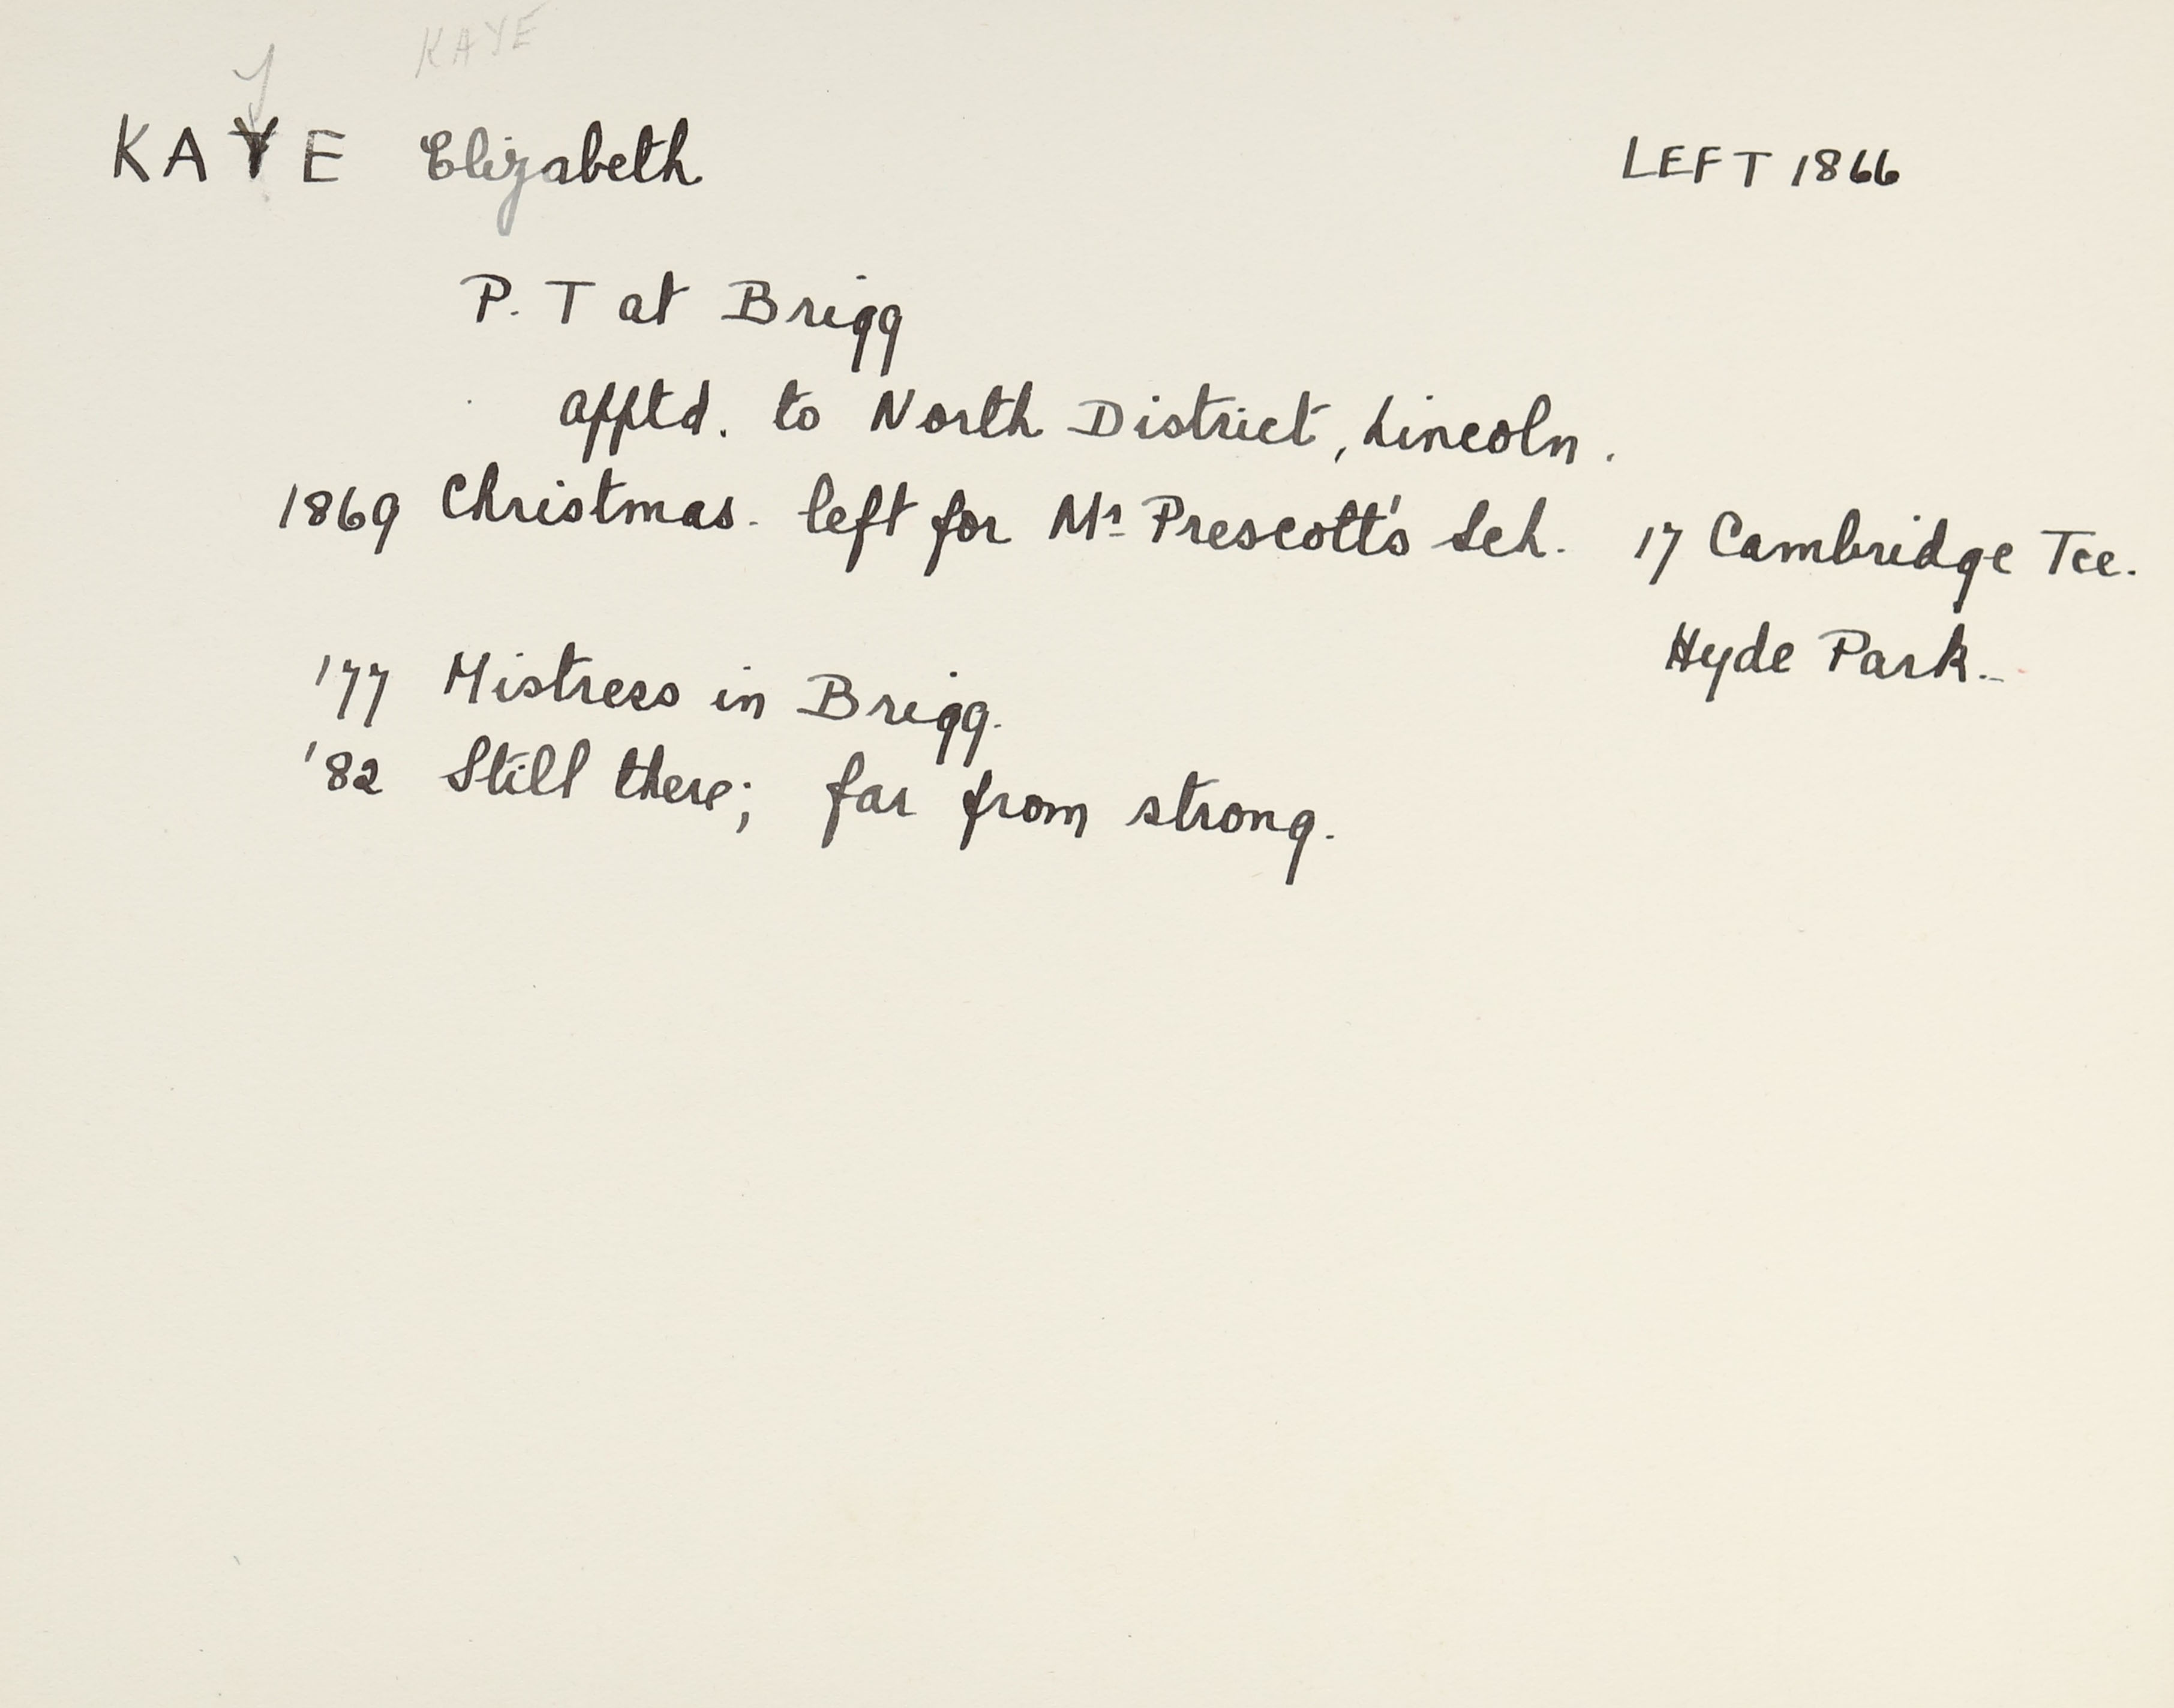 Y KAYE
KAYE Elizabeth LEFT 1866
P. T at Brigg
apptd. to North District, Lincoln.
1869 Christmas. left for Mr Prescott's Sch. 17 Cambridge Tce.
Hyde Park.
'77 Mistress in Brigg.
'82 Still there; far from strong.